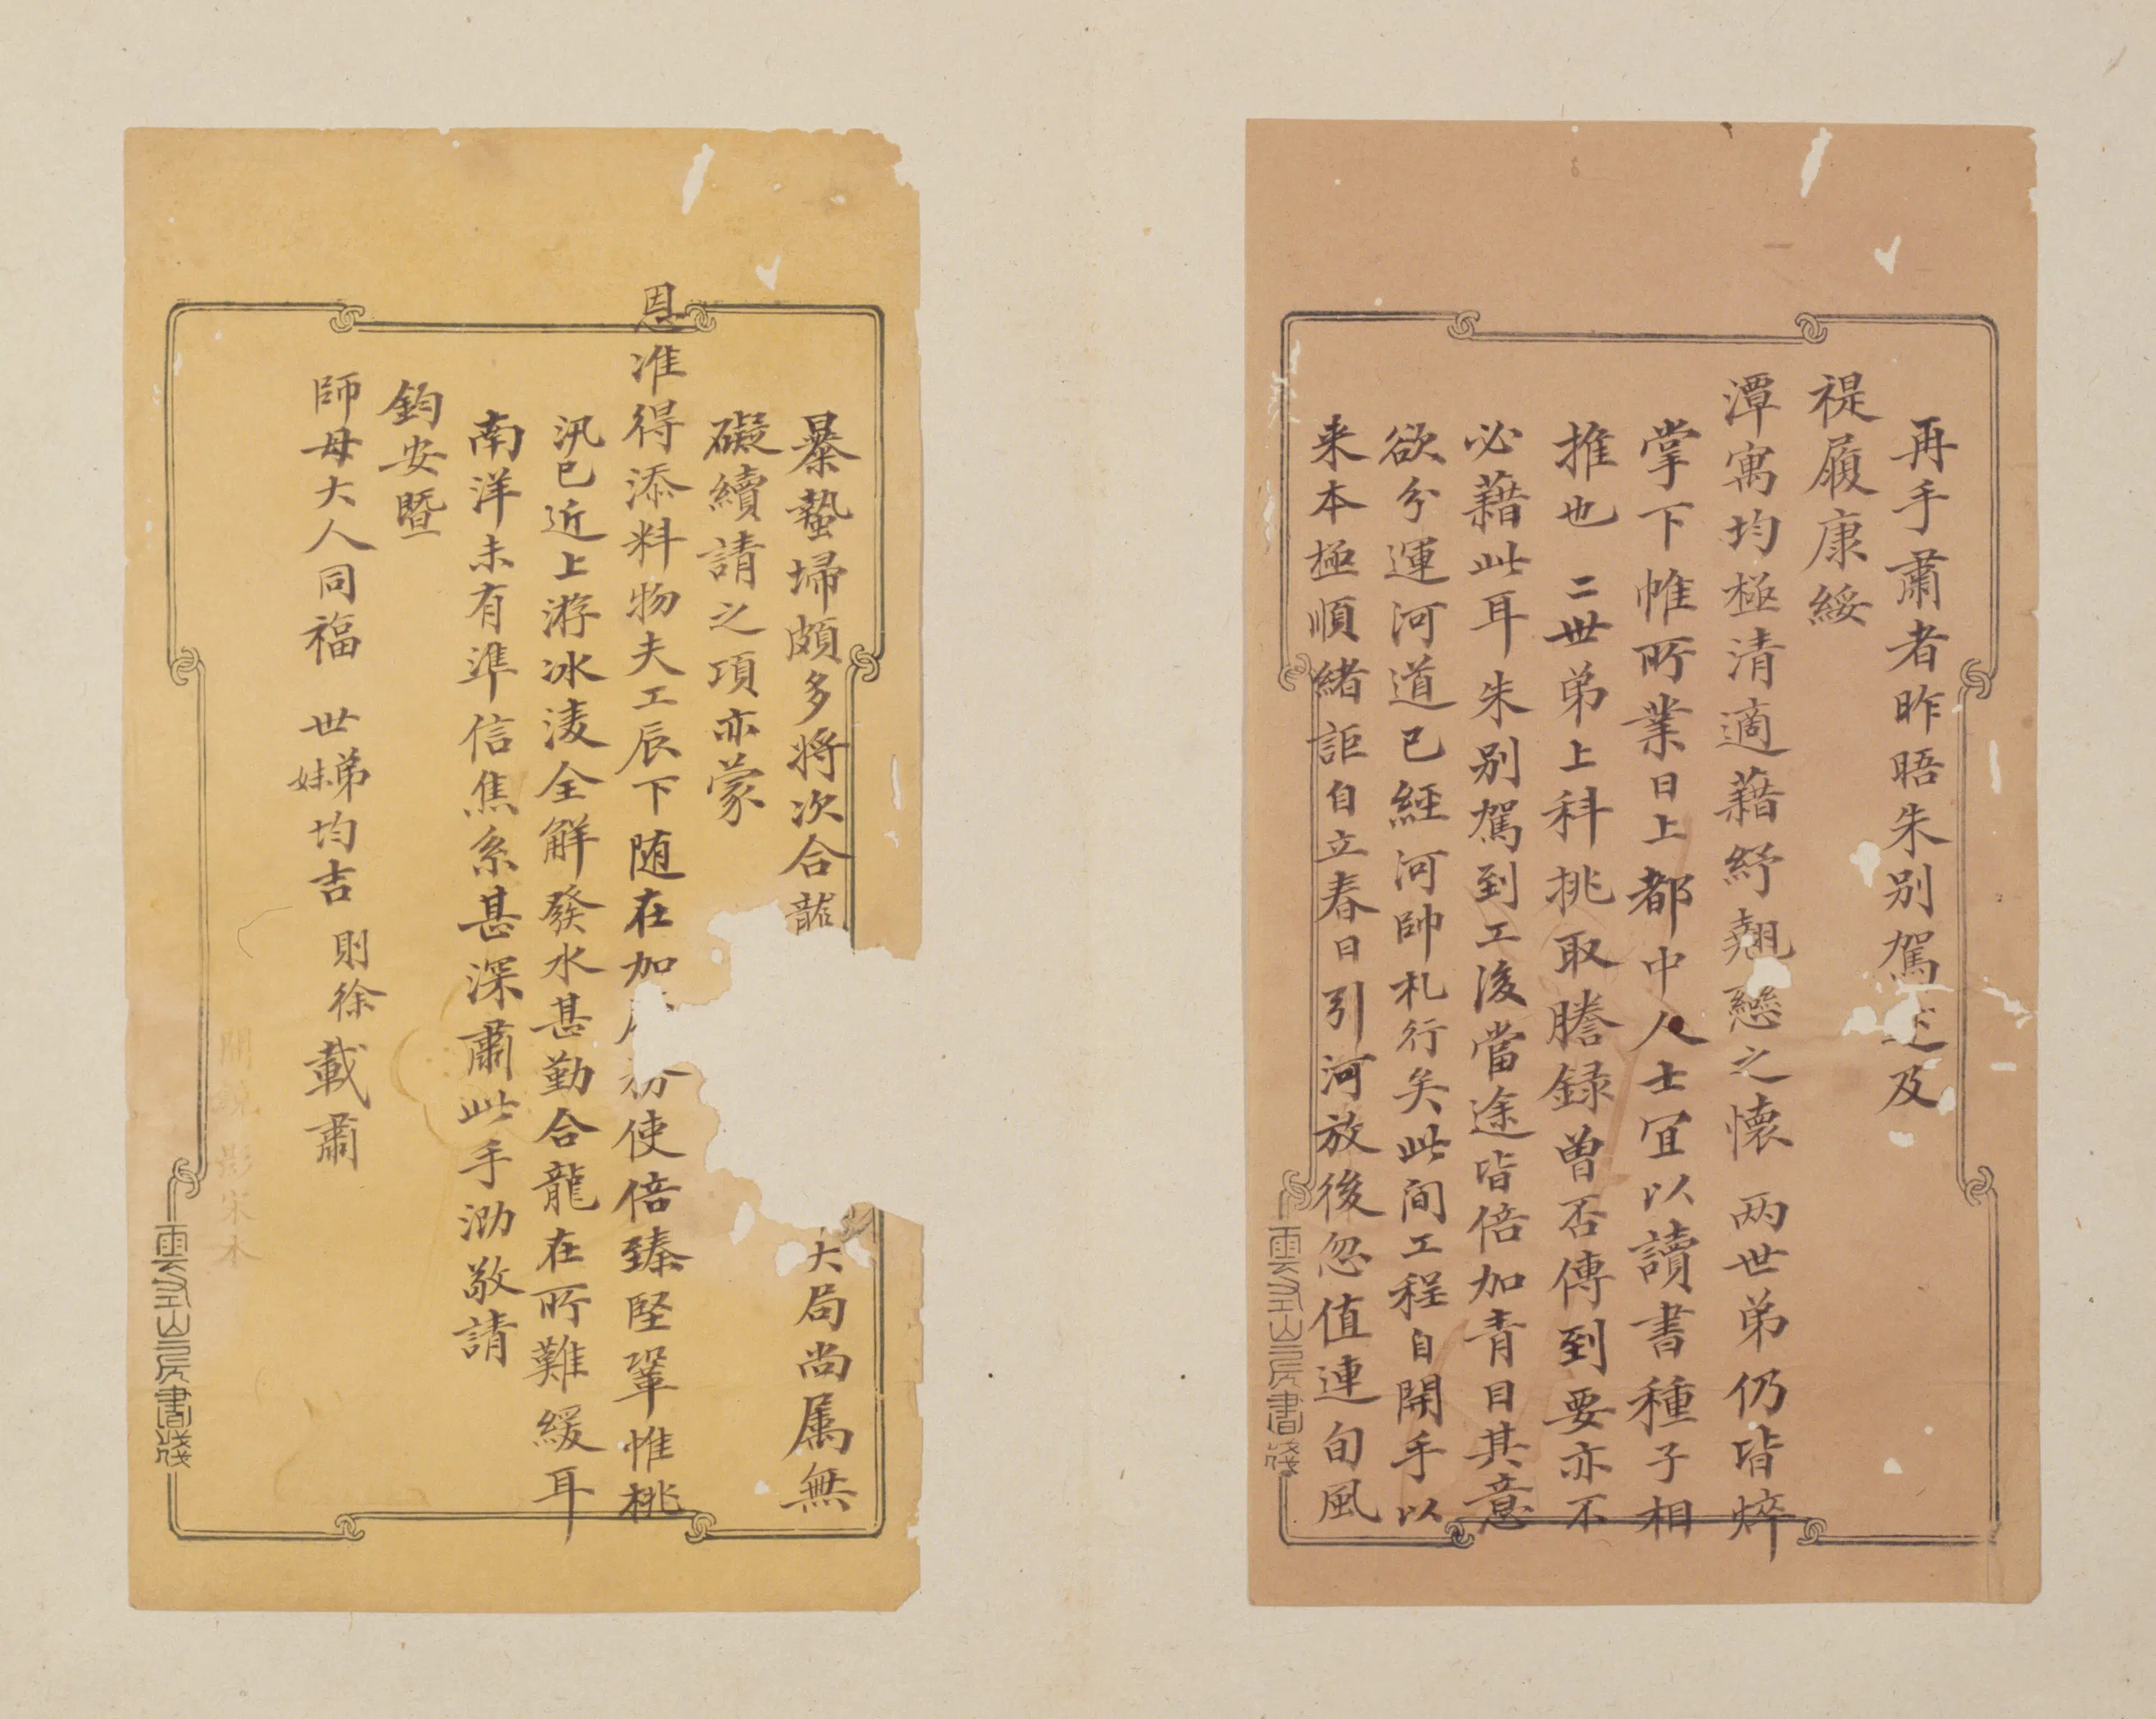 再手肅者昨晤朱別駕述及
禔履康綏
潭寓均極清適藉紓翹戀之懷 两世弟仍皆焠
掌下帷所業日上都中人士宜以讀書種子相
推也 二世弟上科挑取謄録曽否傳到要亦不
必藉此耳朱別駕到工後當途皆倍加青目其意
欲分運河道已經河帥札行矣此间工程自開手以
来本極順緒詎自立春日引河放後忽值連旬風
雲左山房書牋
暴蟄埽頗多將次合龍
大局尚属無
礙續請之項亦蒙
恩准得添料物夫工辰下随在加
使倍臻堅鞏惟桃
汛已近上游冰淩全解發水甚勤合龍在所難緩耳
南洋未有準信焦系甚深肅此手泐敬請
鈞安暨
師母大人同福 世弟妹均吉 則徐載肅
影宋本
雲左山房書牋